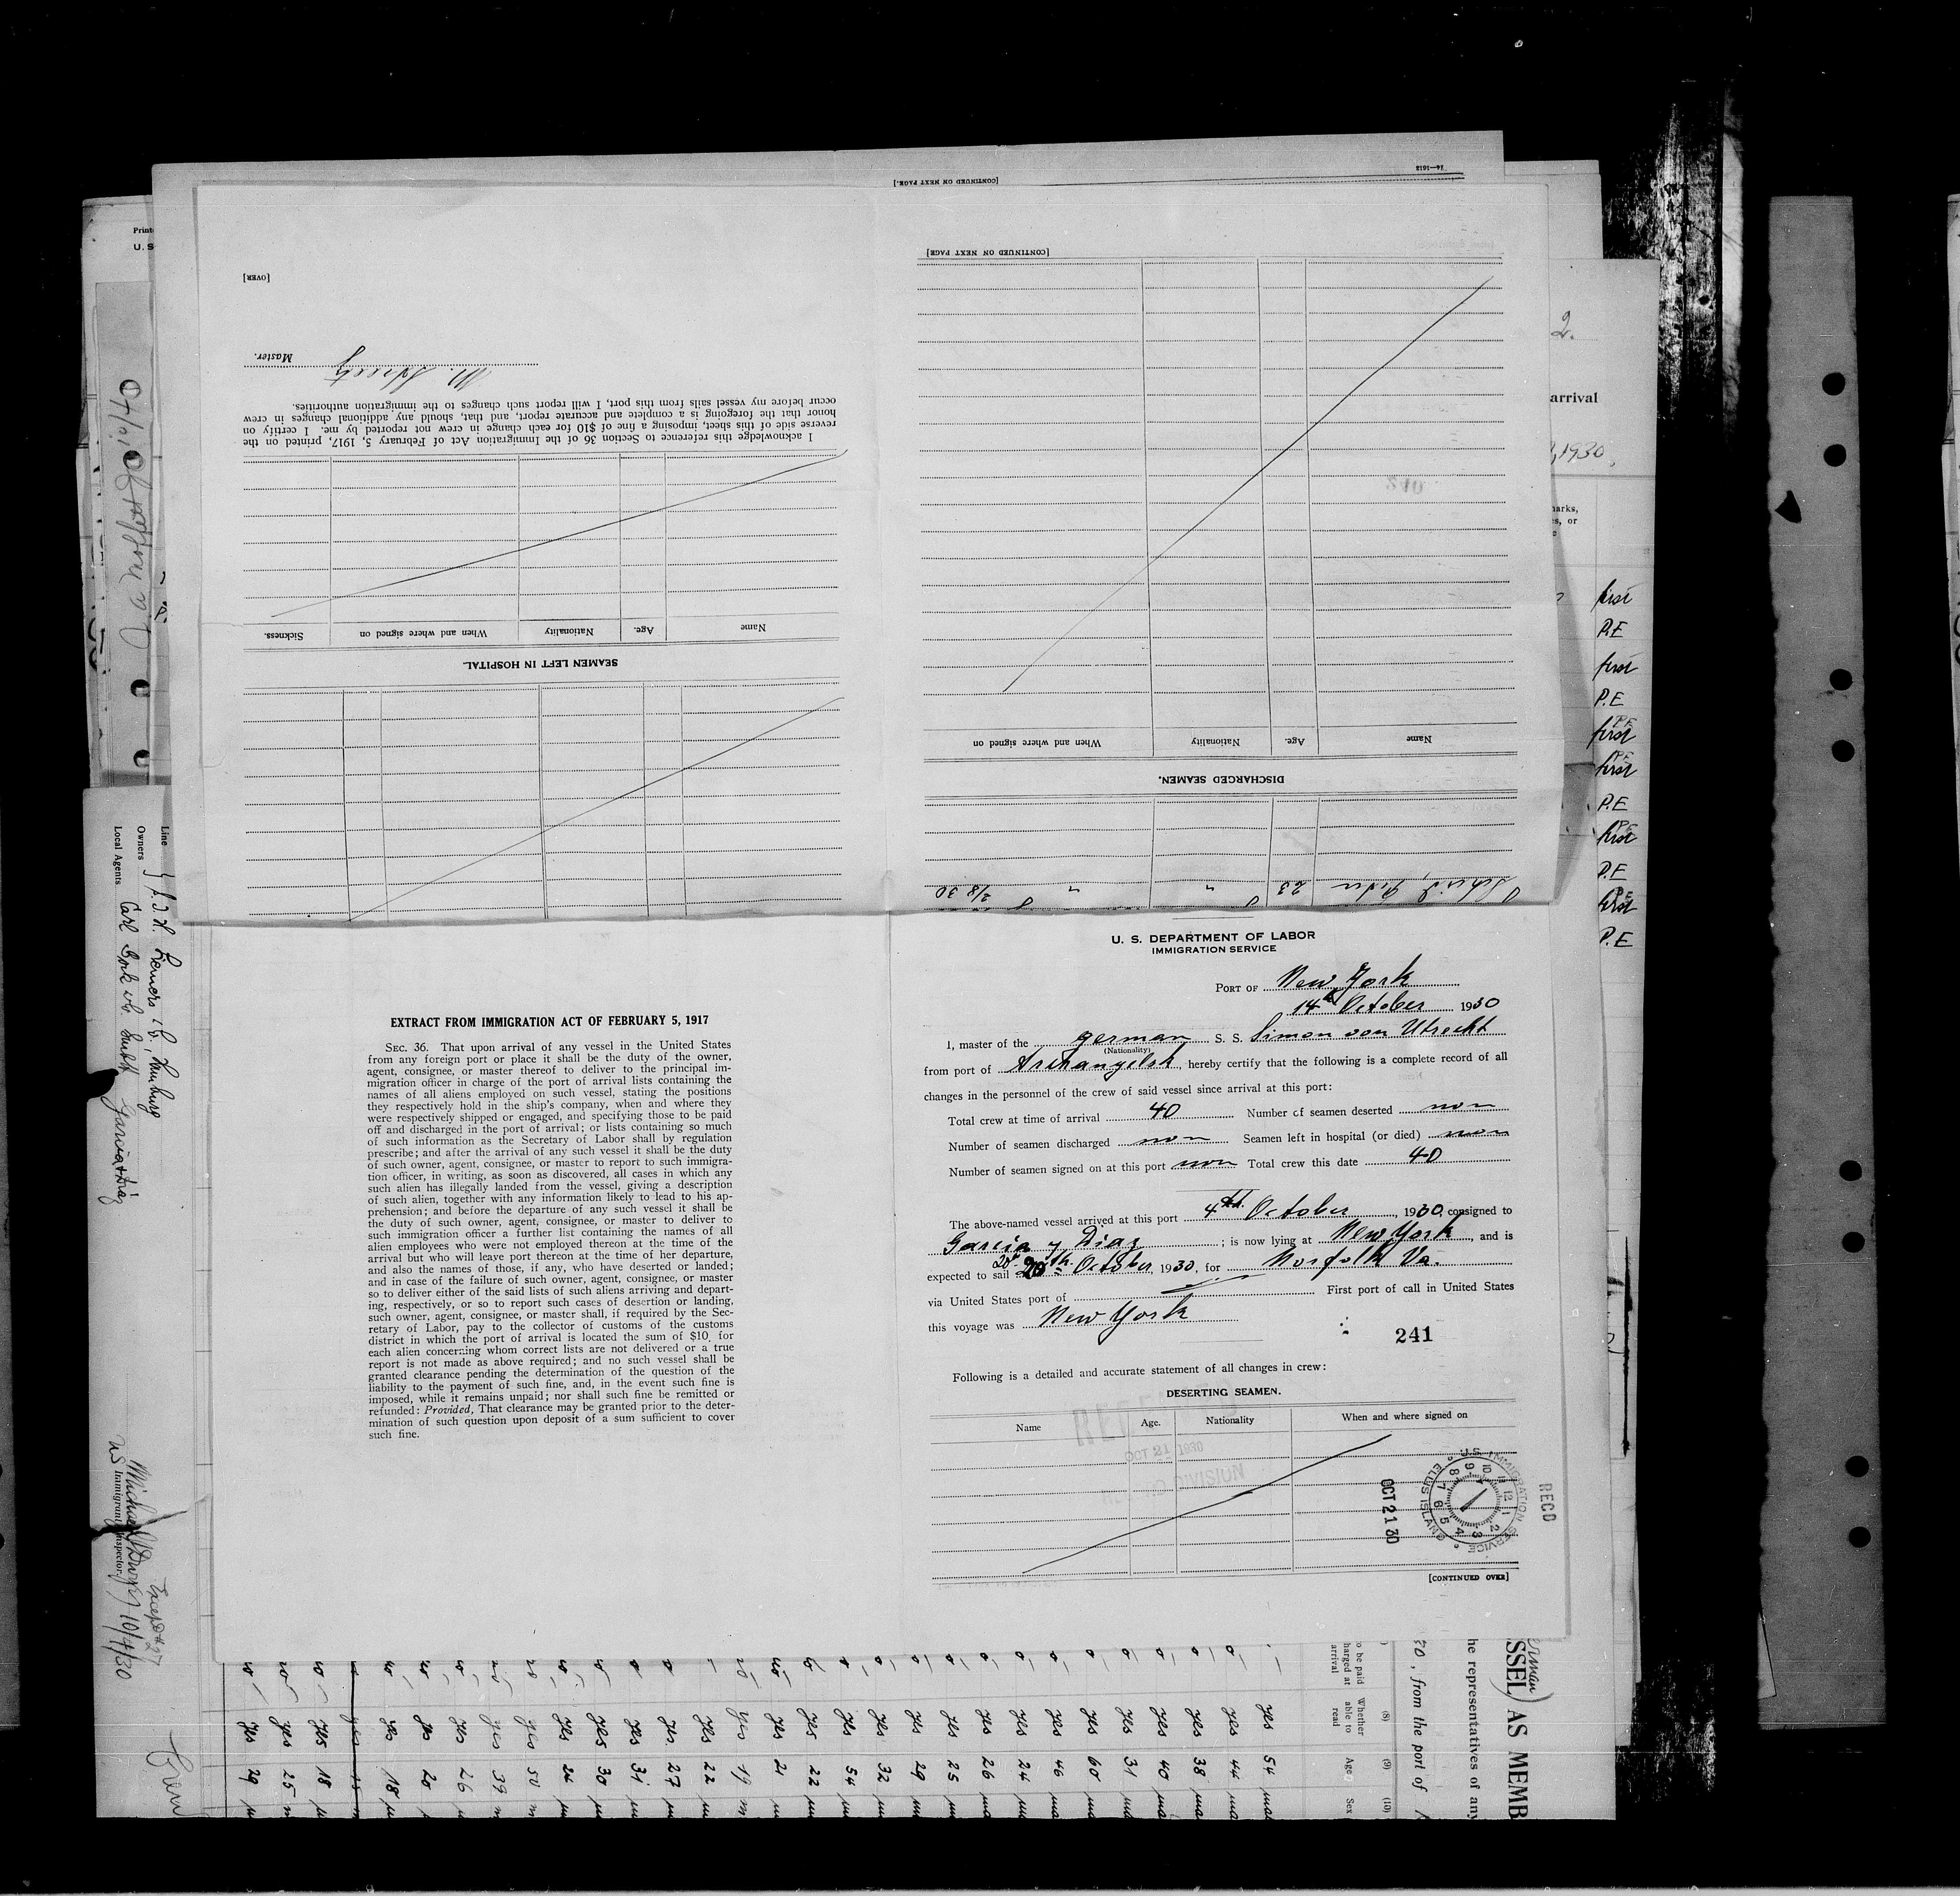 [CONTINUED ON NEXT PAGE.]
16—1613
[CONTINUED ON NEXT PAGE]
DISCHARGED SEAMEN.
Name
Age.
Nationality
When and where signed on
23 " " 2/8 30
SEAMEN LEFT IN HOSPITAL.
Name
Age.
Nationality
When and where signed on
Sickness.
I acknowledge this reference to Section 36 of the Immigration Act of February 5, 1917, printed on the
reverse side of this sheet, imposing a fine of $10 for each change in crew not reported by me. I certify on
honor that the foregoing is a complete and accurate report, and that, should any additional changes in crew
occur before my vessel sails from this port, I will report such changes to the immigration authorities.
Master.
[OVER]
EXTRACT FROM IMMIGRATION ACT OF FEBRUARY 5, 1917
SEC. 36. That upon arrival of any vessel in the United States
from any foreign port or place it shall be the duty of the owner,
agent, consignee, or master thereof to deliver to the principal im-
migration officer in charge of the port of arrival lists containing the
names of all aliens employed on such vessel, stating the positions
they respectively hold in the ship's company, when and where they
were respectively shipped or engaged, and specifying those to be paid
off and discharged in the port of arrival; or lists containing so much
of such information as the Secretary of Labor shall by regulation
prescribe; and after the arrival of any such vessel it shall be the duty
of such owner, agent, consignee, or master to report to such immigra-
tion officer, in writing, as soon as discovered, all cases in which any
such alien has illegally landed from the vessel, giving a description
of such alien, together with any information likely to lead to his ap-
prehension; and before the departure of any such vessel it shall be
the duty of such owner, agent, consignee, or master to deliver to
such immigration officer a further list containing the names of all
alien employees who were not employed thereon at the time of the
arrival but who will leave port thereon at the time of her departure,
and also the names of those, if any, who have deserted or landed;
and in case of the failure of such owner, agent, consignee, or master
so to deliver either of the said lists of such aliens arriving and depart-
ing, respectively, or so to report such cases of desertion or landing,
such owner, agent, consignee, or master shall, if required by the Sec-
retary of Labor, pay to the collector of customs of the customs
district in which the port of arrival is located the sum of $10 for
each alien concerning whom correct lists are not delivered or a true
report is not made as above required; and no such vessel shall be
granted clearance pending the determination of the question of the
liability to the payment of such fine, and, in the event such fine is
imposed, while it remains unpaid; nor shall such fine be remitted or
refunded: Provided, That clearance may be granted prior to the deter-
mination of such question upon deposit of a sum sufficient to cover
such fine.
U. S. DEPARTMENT OF LABOR
IMMIGRATION SERVICE
PORT OF New York
14th October 1930
I, master of the german S. S. Simon von Utrecht
(Nationality)
from port of Archangelsk, hereby certify that the following is a complete record of all
changes in the personnel of the crew of said vessel since arrival at this port:
Total crew at time of arrival 40 Number of seamen deserted non
Number of seamen discharged non Seamen left in hospital (or died) non
Number of seamen signed on at this port non Total crew this date 40
The above-named vessel arrived at this port 4th October, 1930, consigned to
Garcia y Diaz; is now lying at New York, and is
expected to sail 20th October, 1930, for Norfolk Va.
via United States port of First port of call in United States
this voyage was New York
241
Following is a detailed and accurate statement of all changes in crew:
DESERTING SEAMEN.
Name
Age.
Nationality
When and where signed on
OCT 21 1930
DIVISION
RECD
U.S. IMMIGRATION SERVICE
ELLIS ISLAND
OCT 21 30
[CONTINUED OVER]
Line
Owners
Local Agents
Garcia + Diaz
Immigrant Inspector.
10/4/30
2.
arrival
, 1930,
first
P.E
first
P.E
first
first
P.E
first
P.E
first
P.E
SSEL) AS MEMB
he representatives of any
30, from the port of
(8)
Whether
able to
read
(9)
Age
(10)
Sex
yes 54
yes 44
yes 38
yes 40
yes 31
yes 60
yes 46
yes 24
yes 26
yes 25
yes 29
yes 32
yes 54
yes 22
yes 21
yes 19
yes 22
yes 27
yes 31
yes 30
yes 24
yes 50
yes 39
yes 26
yes 20
yes 18
yes 18
yes 25
yes 29